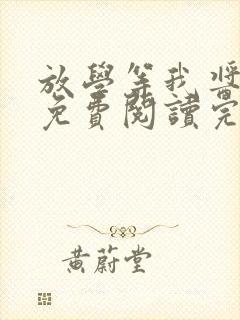 放學等我將
免費閱讀完
黃蔚堂